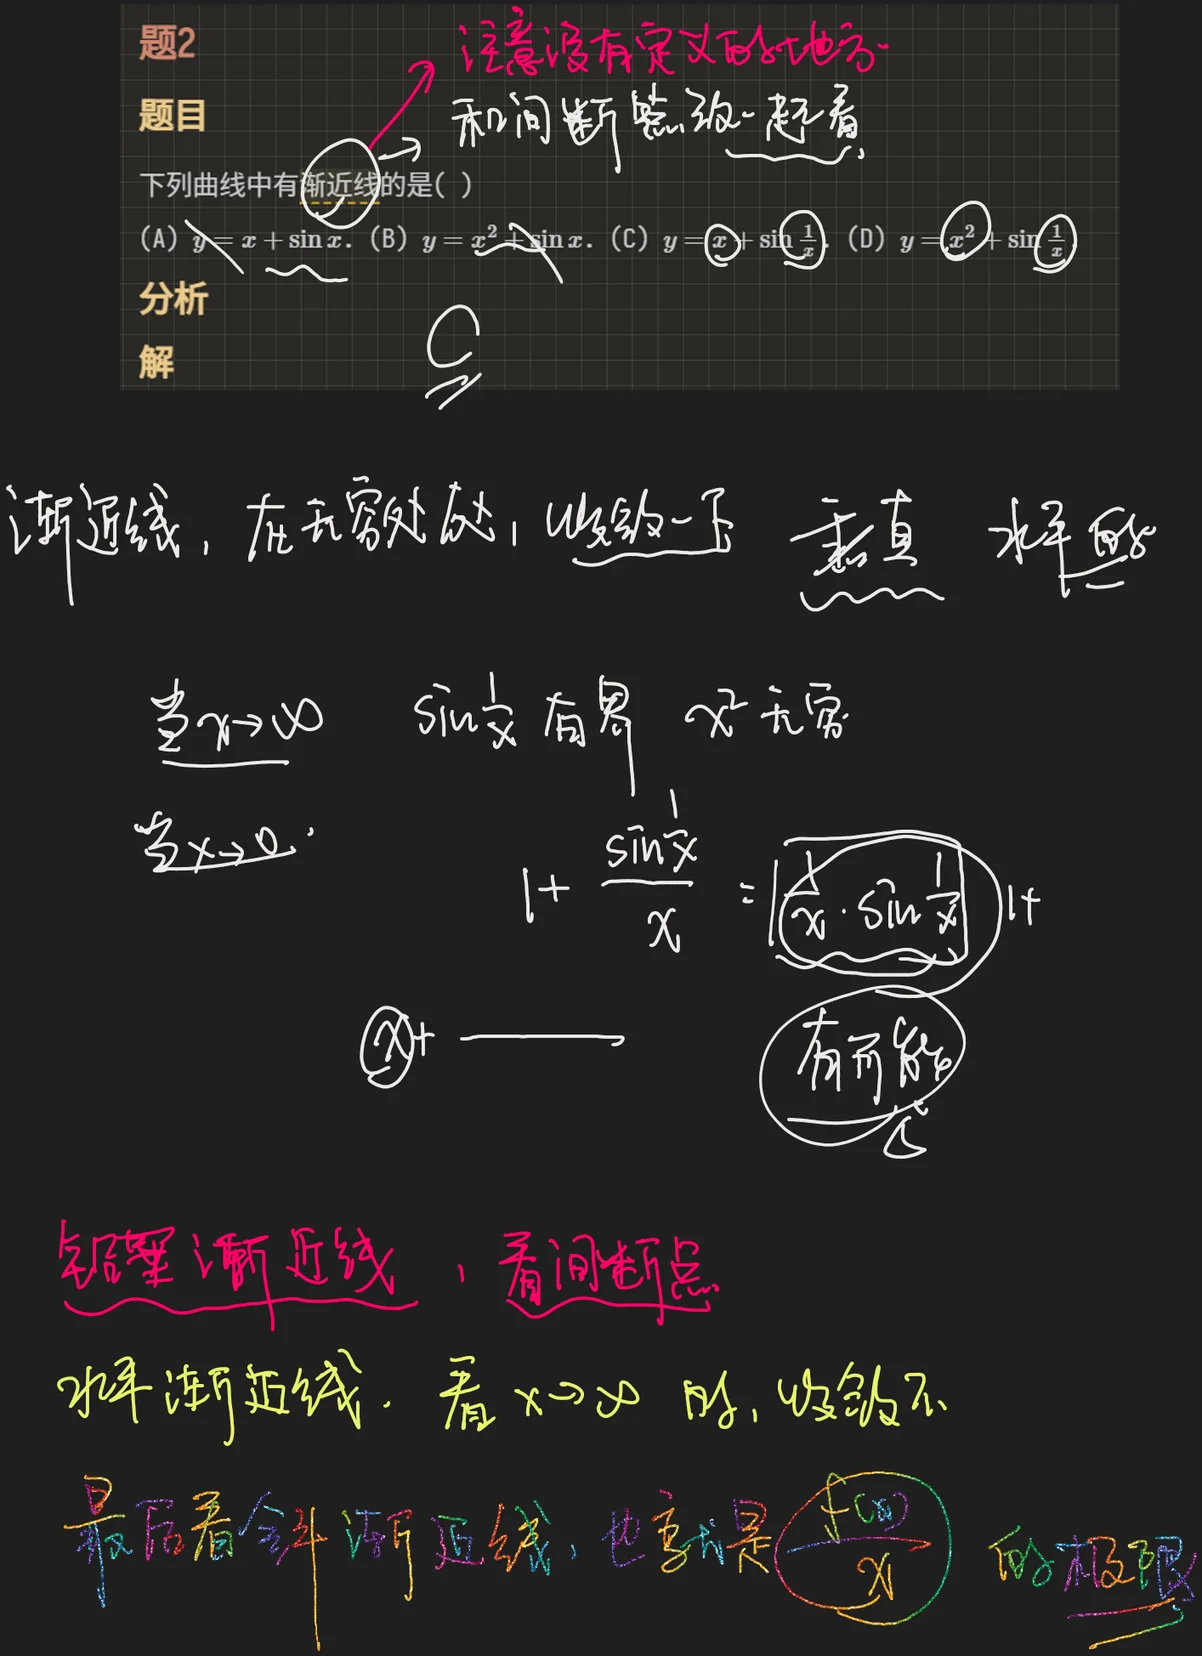 题2
注意没有定义的地方
题目
和间断点放一起看
下列曲线中有渐近线的是( )
(A) y = x + sin x. (B) y = x² + sin x. (C) y = x + sin 1/x. (D) y = x² + sin 1/x.
分析
C
解
渐近线, 在无穷处, 收敛一下 垂直 水平的
当x→∞ sin 1/x 有界 x² 无穷
当x→0.
1+ sin 1/x / x = 1/x · sin 1/x 1+
x+ —
有可能
渐近线, 看间断点
水平渐近线. 看 x→∞ 时, 收敛不
最后看斜渐近线, 也就是 f(x)/x 的极限